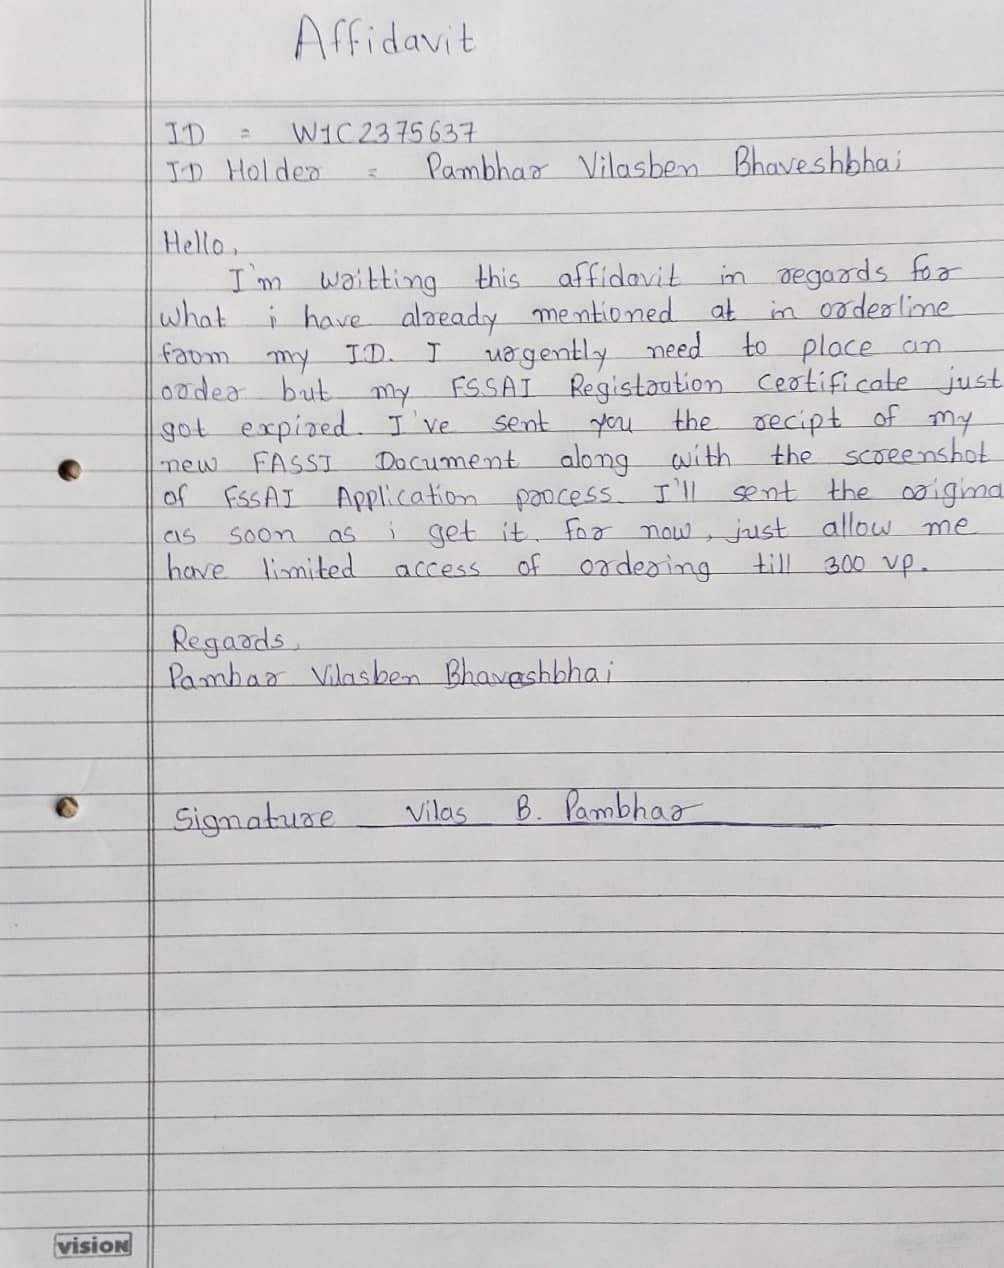 Affidavit
ID = W1C2375637
ID Holder = Pambhar Vilasben Bhaveshbhai
Hello,
I'm writting this affidavit in regards for
what i have already mentioned at in orderline
from my ID. I urgently need to place an
order but my FSSAI Registration certificate just
got expired. I've sent you the recipt of my
new FASSI Document along with the screenshot
of FSSAI Application process. I'll sent the original
as soon as i get it. For now, just allow me
have limited access of ordering till 300 vp.
Regards,
Pambar Vilasben Bhaveshbhai
Signature Vilas B. Pambhar
VISION